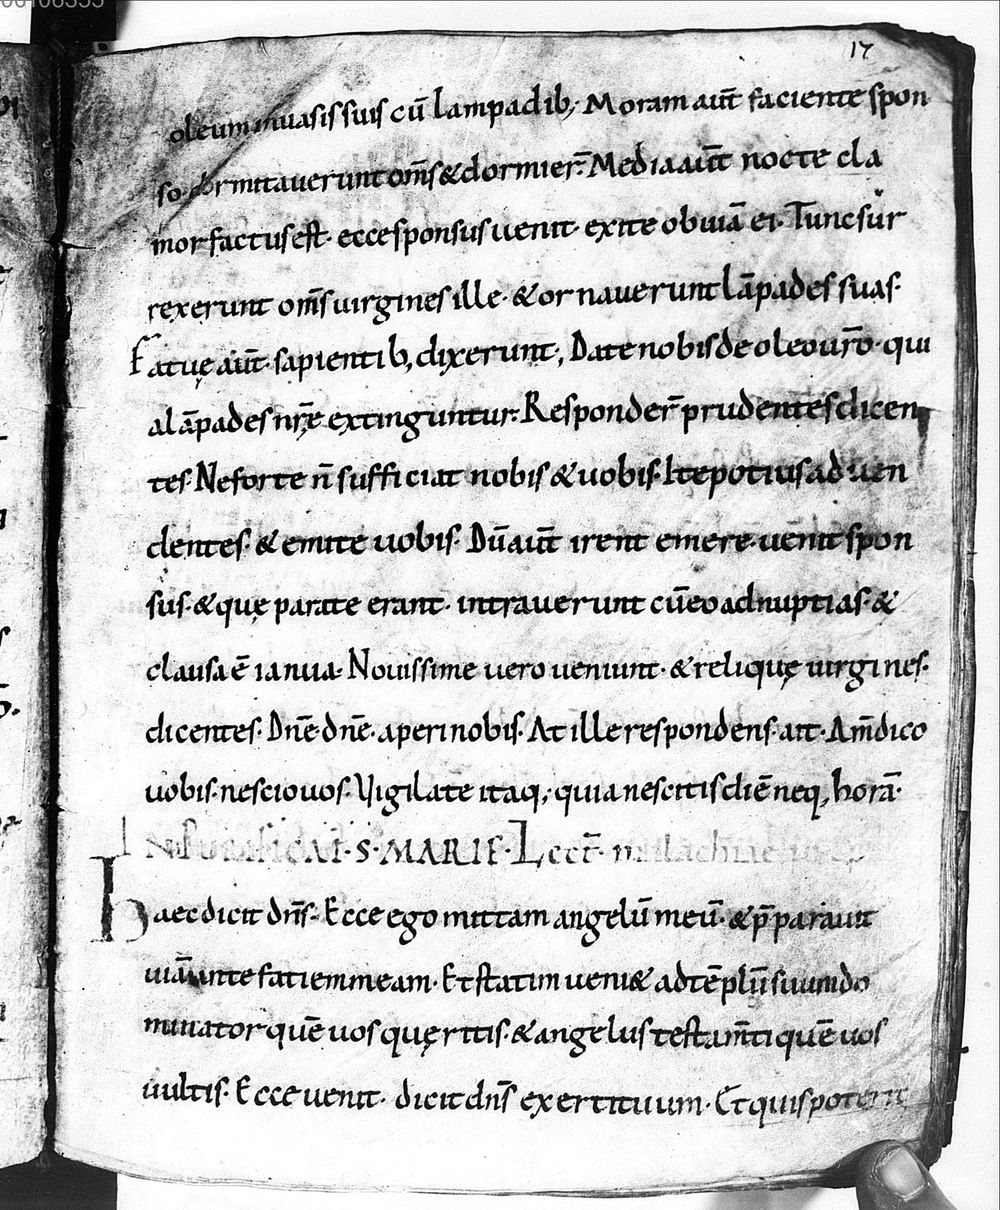 17
oleum in uasis suis cū lampadib; Moram aūt faciente spon
so dormitauerunt om̄s & dormier̄. Media aūt nocte cla
mor factus est. ecce sponsus uenit. exite obuiā ei. Tunc sur
rexerunt om̄s uirgines ille. & ornauerunt lāpades suas.
Fatuę aūt. sapientib; dixerunt; Date nobis de oleo ur̄o. qui
a lāpades nr̄ę extinguntur. Responder̄ prudentes dicen
tes. Ne forte n̄ sufficiat nobis & uobis. Ite potius ad uen
dentes. & emite uobis. Dū aūt irent emere. uenit spon
sus. & quę parate erant. intrauerunt cū eo ad nuptias. &
clausa ē ianua. Nouissime uero ueniunt. & reliquę uirgines.
dicentes. Dn̄e dn̄e. aperi nobis. At ille respondens. ait. Am̄ dico
uobis. nescio uos. Vigilate itaq; quia nescitis diē neq; horā.
IN PURIFICAT. S. MARIE. Lect̄. malachiae
Haec dicit dn̄s. Ecce ego mittam angelū meū. & p̄parauit
uiā ante fatiem meam. Et statim ueni& ad tēplū suum do
minator quē uos quęritis. & angelus testam̄ti quē uos
uultis. Ecce uenit. dicit dn̄s exertituum. Et quis poterit